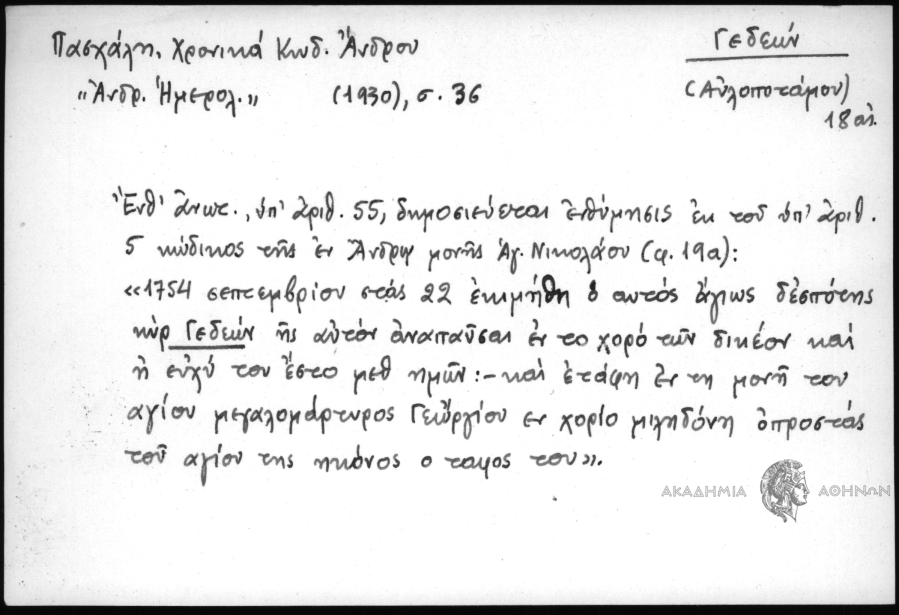 Πασχάλη, Χρονικά Κωδ. Ἄνδρου
„Ἀνδρ. Ἡμερολ.„ (1930), σ. 36
Γεδεών
(Αὐλοποτάμου)
18 αἰ.
Ἔνθ' ἄνωτ., ὑπ' ἀριθ. 55, δημοσιεύεται ἐνθύμησις ἐκ τοῦ ὑπ' ἀριθ.
5 κώδικος τῆς ἐν Ἄνδρῳ μονῆς Ἁγ. Νικολάου (φ. 19α):
«1754 σεπτεμβρίου στάς 22 ἐκιμήθη ὁ αυτός ἅγιως δέσπότης
κὺρ Γεδεών ἧς αὐτόν ἀναπαῦσαι ἐν το χορό τῶν δικέον καί
ἡ εὐχύ του ἔστο μεθ ημῶν :– καί ἐτάφη ἐν τη μονῆ του
αγίου μεγαλομάρτυρος Γεώργίου εν χορίο μιληδόνη ὀπροστάς
τοῦ αγίου της ηκόνος ο ταφος του».
ΑΚΑΔΗΜΙΑ ΑΘΗΝΩΝ